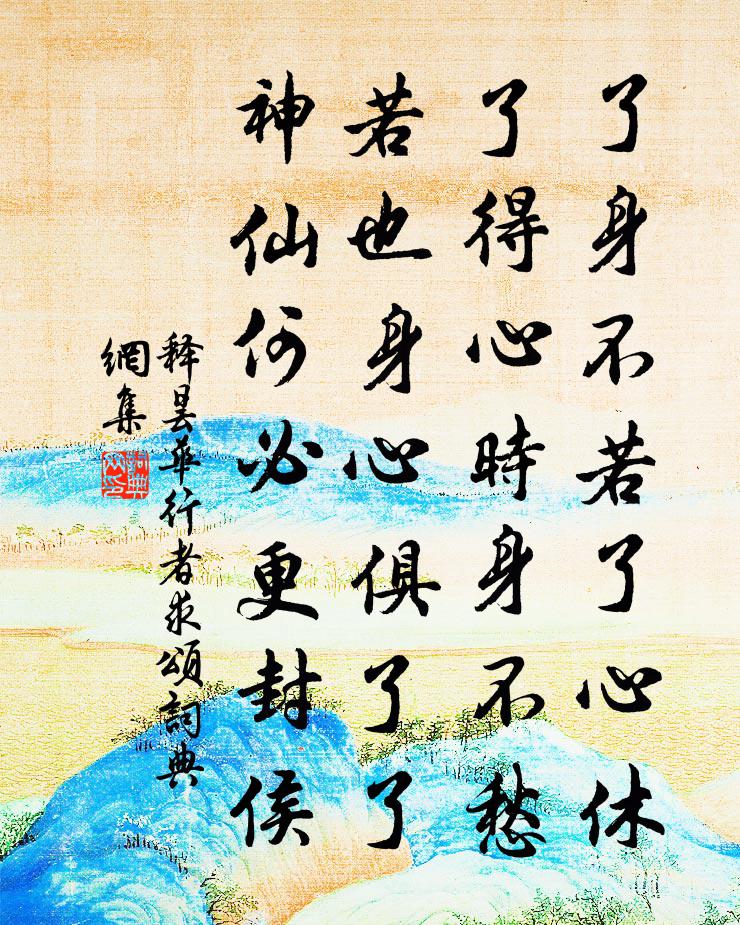 了身不若了心休
了得心時身不愁
若也身心俱了了
神仙何必更封侯
释曇華行者求頌詞典
網集
詞典